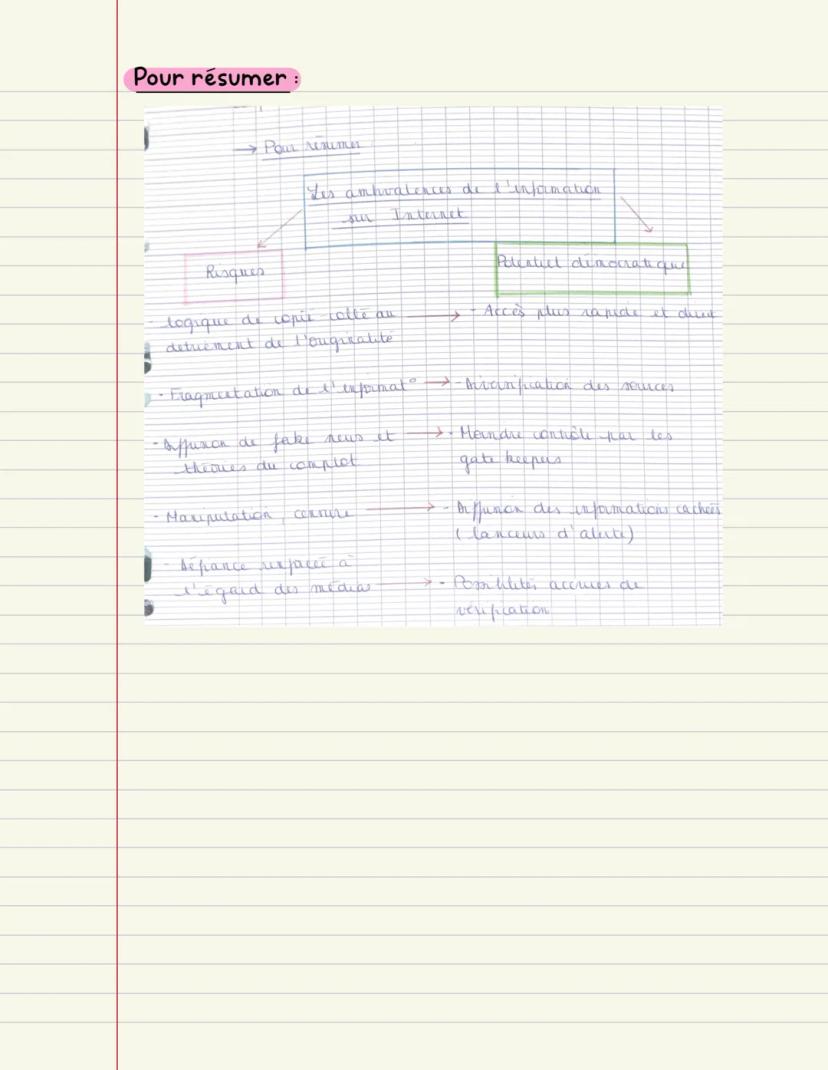 Pour résumer :
→ Pour résumer
Les ambivalences de l'information
sur Internet
Risques
Potentiel démocratique
- Logique de copié collé au → - Accès plus rapide et direct
détriement de l'originalité
- Fragmentation de l'informat° → - Diversification des sources
- Diffusion de fake news et → - Moindre contrôle par les
théories du complot
gate keepers
- Manipulation, censure → - Diffusion des informations cachées
(lanceurs d'alerte)
- Défiance
l'égard des médias → - Possibilités accrues de
vérification